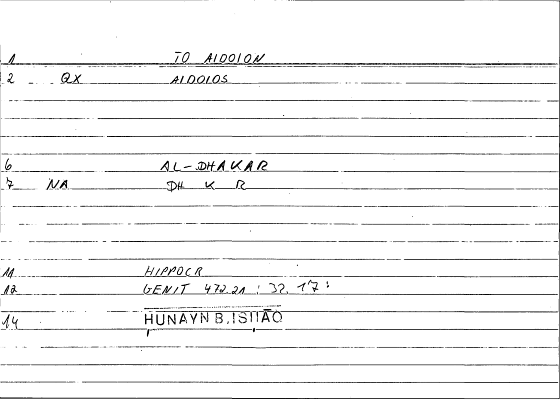 1 TO AIDOION
2 QX AIDOIOS
6 AL-DHAKAR
7 NA DH K R
11 HIPPOCR
12 GENIT 472.21 : 32.17:
14 HUNAYN B. ISḤĀQ